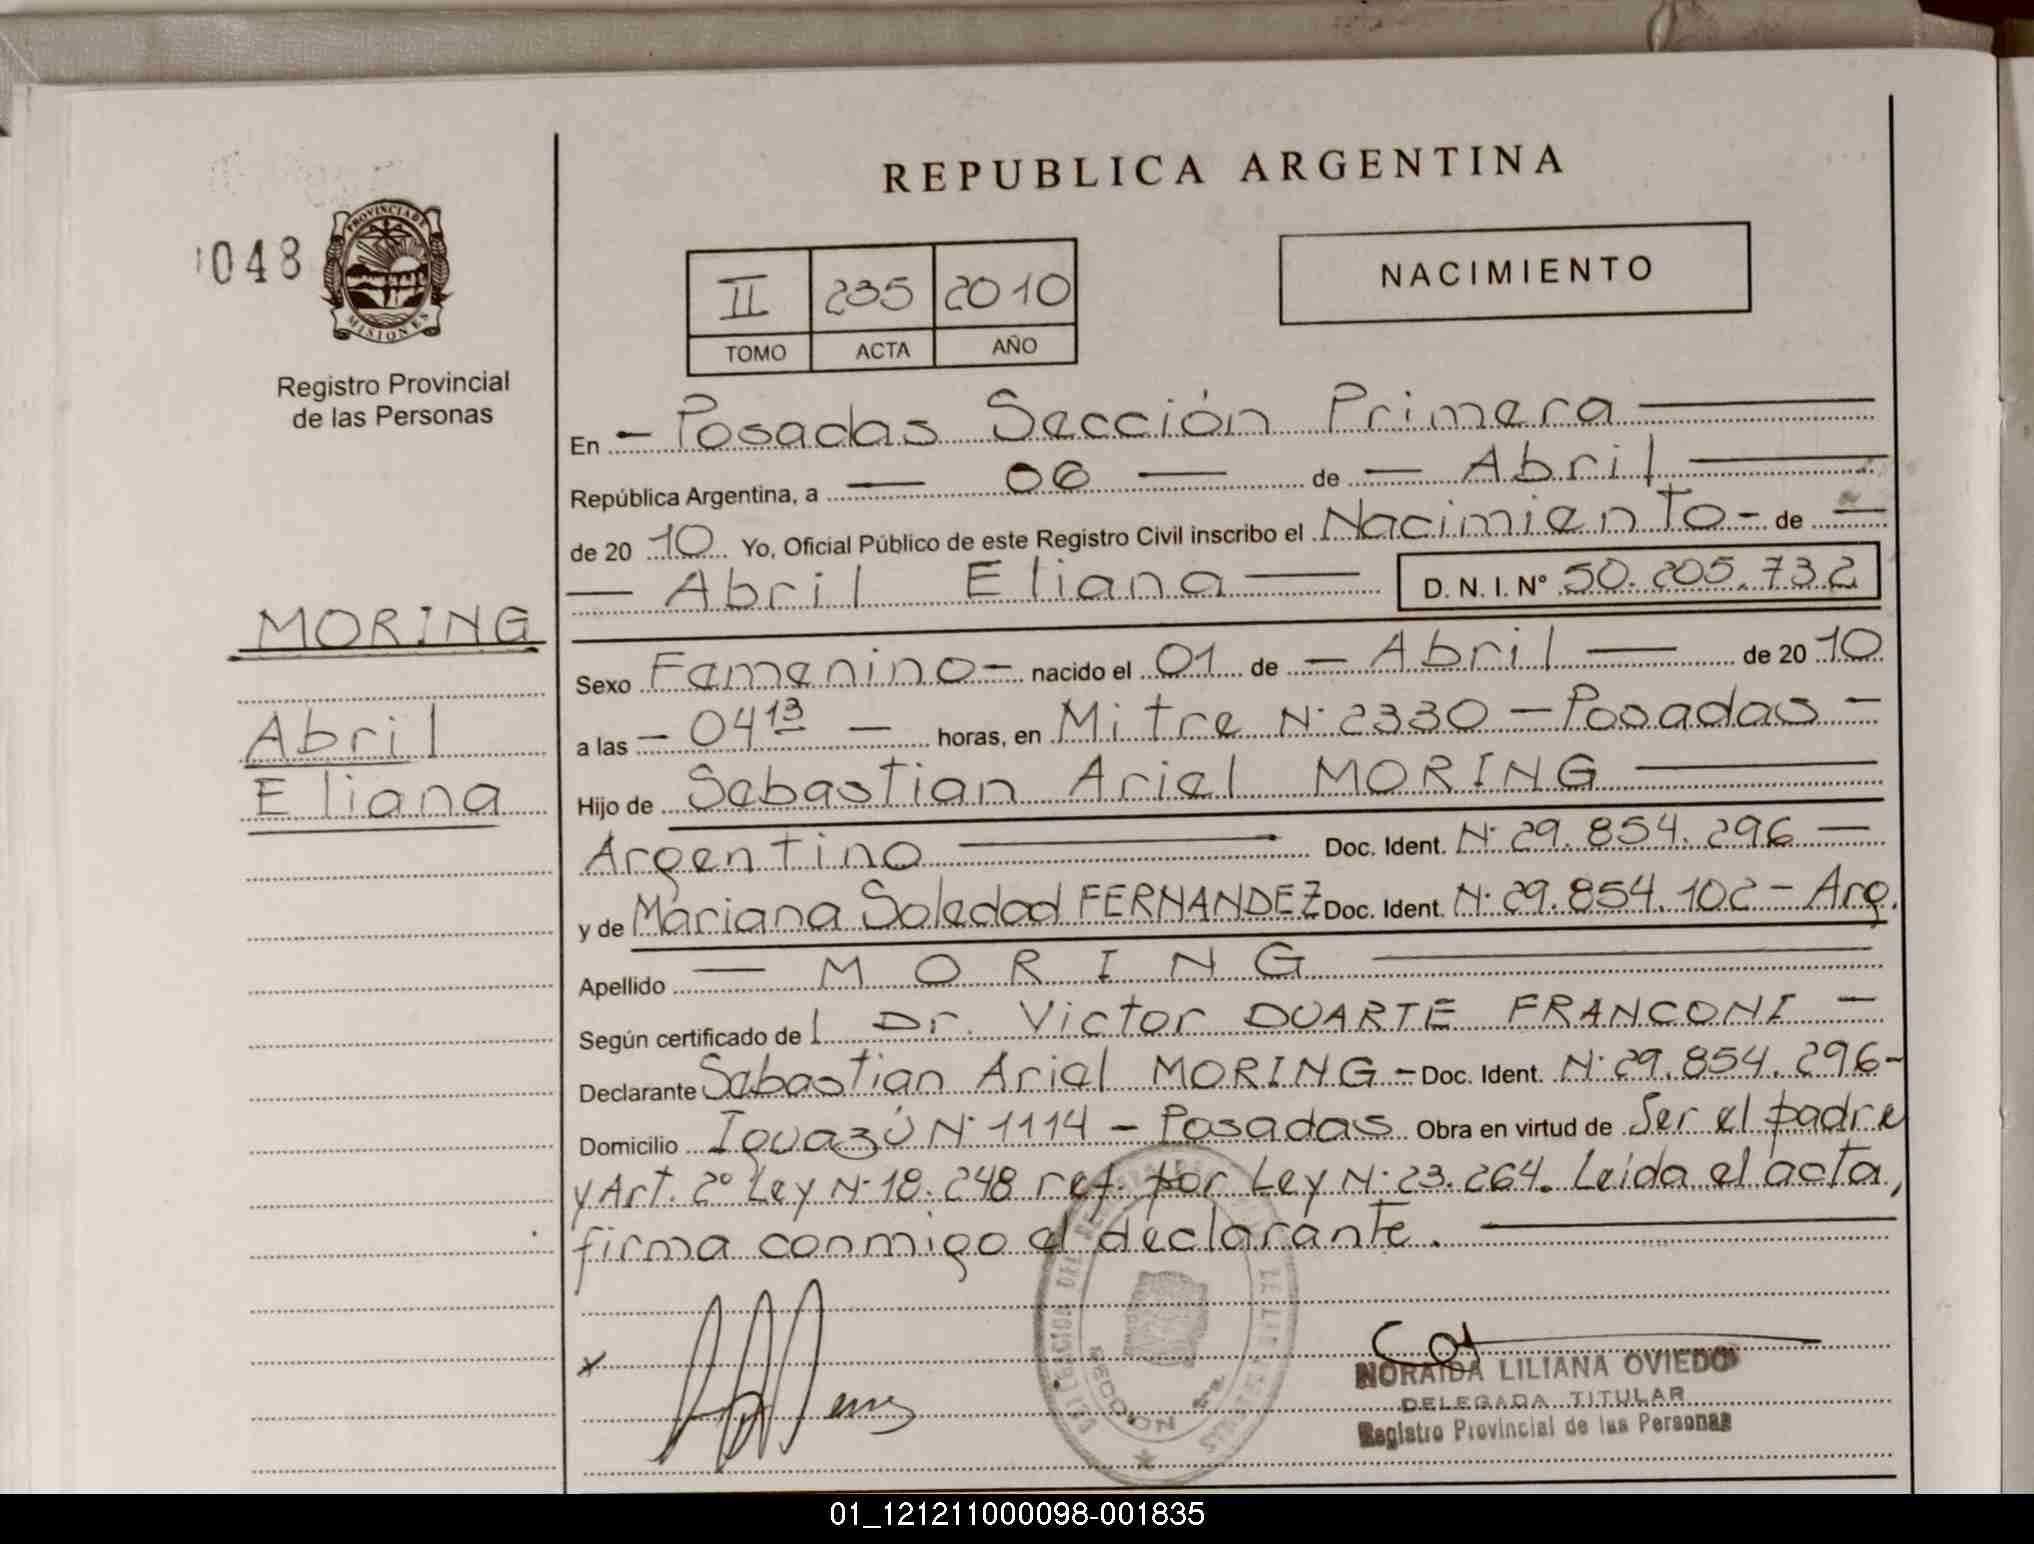 REPUBLICA ARGENTINA
048
PROVINCIA DE
MISIONES
Registro Provincial
de las Personas
II 235 2010
TOMO ACTA AÑO
NACIMIENTO
En - Posadas Sección Primera
República Argentina, a - 06 - de - Abril
de 20 10 Yo, Oficial Público de este Registro Civil inscribo el Nacimiento - de -
- Abril Eliana - D. N. I. N° 50.205.732
MORING
Abril
Eliana
Sexo Femenino - nacido el 01 de - Abril - de 20 10
a las - 04 13 - horas, en Mitre N° 2330 - Posadas -
Hijo de Sebastian Ariel MORING
Argentino Doc. Ident. N° 29.854.296 -
y de Mariana Soledad FERNANDEZ Doc. Ident. N° 29.854.102 - Arg.
Apellido - MORING
Según certificado del Dr. Victor DUARTE FRANCONI -
Declarante Sebastian Ariel MORING - Doc. Ident. N° 29.854.296 -
Domicilio Iguazú N° 1114 - Posadas Obra en virtud de Ser el padre
y Art. 2° Ley N° 18.248 ref. por Ley N° 23.264. Leida el acta,
firma conmigo el declarante.
NORAIDA LILIANA OVIEDO
DELEGADA TITULAR
Registro Provincial de las Personas
01_121211000098-001835